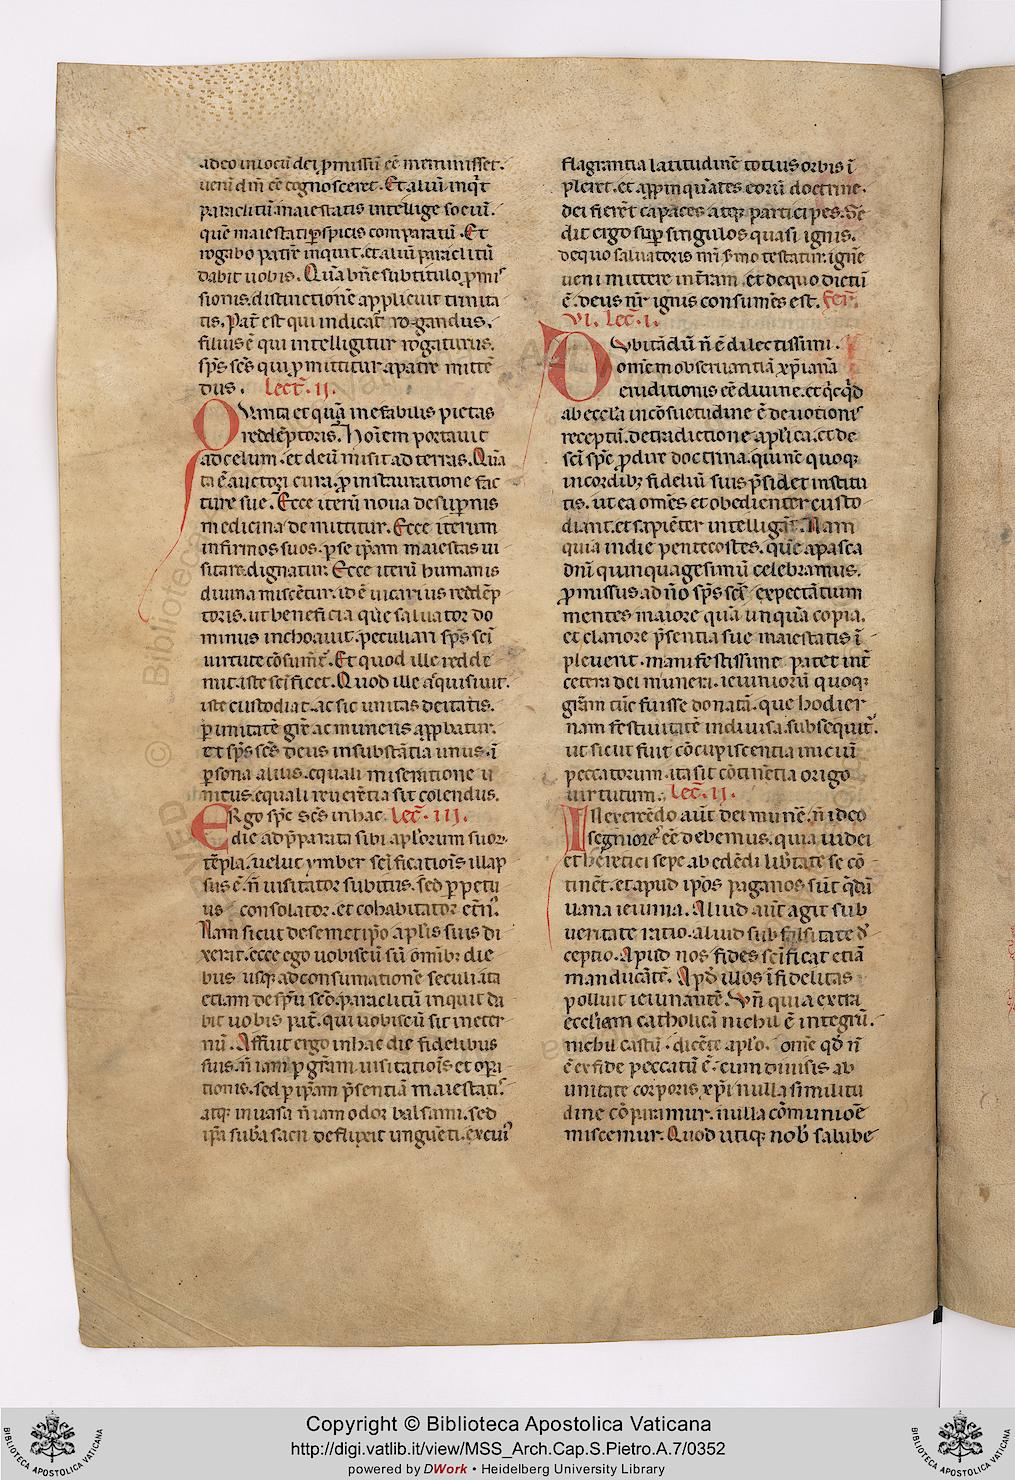 adeo in locū dei p̱missū eē meminisset.
uenū dm̄ eē cognosceret. Et aliū inq̇t
paraclitū. maiestatis intellige sociū.
quē maiestati p̱spicis comparatū. Et
rogabo patrē inquit. et aliū paraclitū
dabit uobis. Quā bn̄e sub titulo p̱mis
sionis. distinctionē applicuit trinita
tis. Pat̄ est qui indicat̄ rogandus.
filius ē qui intelligitur rogaturus.
sp̄s sc̄s qui p̱mittitur a patre mitte
dus. Lect̄. ii.
Quanta et quā inefabilis pietas
redēptoris. hoīem portauit
ad celum. et deū misit ad terras. Quā
ta ē auctori cura. p̱ instauratione fac
ture sue. Ecce iterū noua de supnis
medicina demittitur. Ecce iterum
infirmos suos. p̱ se ip̄am maiestas ui
sitare. dignatur. Ecce iterū humanis
diuina miscētur. id ē uicarius redēp
toris. ut beneficia que saluator do
minus inchoauit. peculiari sp̄s sc̄i
uirtute cōsumet̄. Et quod ille rede
mit. iste sc̄ificet. Quod ille aquisiuit.
iste custodiat. ac sic unitas deitatis.
p̱ unitatē gr̄e ac muneris app̱batur.
et sp̄s sc̄s deus in substātia unus. ī
p̱sona alius. equali miseratione u
nicus. equali reuerētia sit colendus.
Ergo sp̄c sc̄s in hac Lec̄. iii.
die ad p̄parata sibi apl̄orum suor
tēpla. uelut ymber sc̄ificatiois illap
sus ē. n̄ uisitator subitus. sed p̱petu
us consolator. et cohabitator et̄n̄.
Nam sicut de semetip̄o apl̄is suis di
xerat. ecce ego uobiscū sū om̄ib; die
bus usq; ad consumationē seculi. ita
etiam de sp̄u sc̄o. paraclitū inquit da
bit uobis pat̄. qui uobiscū sit in eter
nū. Affuit ergo in hac die fidelibus
suis. n̄ iam p̱ gr̄am uisitatiois et op̱a
tionis. sed p̱ ip̄am p̄sentiā maiestatis
atq; in uasa n̄ iam odor balsami. sed
ip̄a sub̄a sacri defluxit unguēti. ex cui'
flagrantia latitudinē totius orbis ī
pleret. et app̱inquātes eorū doctrine.
dei fierēt capaces atq; participes. Se
dit ergo sup̱ singulos quasi ignis.
de quo saluatoris nr̄i s̄mo testatur. ignē
ueni mittere in t̄ram. et de quo dictū
ē. deus nr̄ ignis consumēs est. Fer̄.
vi. Lec̄. i.
Dubitādū n̄ ē dilectissimi.
omēm obseruantiā xp̄ianā
eruditionis eē diuine. et q̇cq̇d
ab ecc̄lia in cōsuetudine ē deuotionis
receptū. de tradictione apl̄ica. et de
sc̄i sp̄c p̱dire doctrina. qui nūc quoq;
in cordib; fideliū suis p̄sidet institu
tis. ut ea om̄es et obedienter custo
diant. et sapiēter intelligāt. Nam
quia in die pentecostes. quē a pasca
dn̄i quinquagesimū celebramus.
p̱missus ad n̄o sp̄s sc̄s expectātium
mentes maiore quā unquā copia.
et clariore p̄sentia sue maiestatis ī
pleuerit. manifestissime patet int̄
cetera dei munera. ieiuniorū quoq;
gr̄am tūc fuisse donatā. que hodier
nam festiuitatē indiuisa. subsequit̄.
ut sicut fuit cōcupiscentia iniciū
peccatorum. ita sit cōtinētia origo
uirtutum. Lec̄. ii.
In exercēdo aut̄ dei munē. n̄ ideo
segniores eē debemus. quia iudei
et heretici sepe ab edēdi lib̄tate se cō
tinēt. et apud ip̄os paganos sūt q̄dā
uana ieiunia. Aliud aut̄ agit sub
ueritate ratio. aliud sub falsitate de
ceptio. Apud nos fides sc̄ificat etiā
manducātē. Apd̄ illos īfidelitas
polluit ieiunantē. Vn̄ quia extra
eccliam catholicā nichil ē integrū.
nichil castū. dicēte apl̄o. ome qd̄ n̄
ē ex fide peccatū ē. cum diuisis ab
unitate corporis xp̄i nulla similitu
dine cōparamur. nulla cōmunioē
miscemur. Quod utiq; nob̄ salube
Copyright © Biblioteca Apostolica Vaticana
http://digi.vatlib.it/view/MSS_Arch.Cap.S.Pietro.A.7/0352
powered by DWork • Heidelberg University Library
BIBLIOTECA APOSTOLICA VATICANA
BIBLIOTECA APOSTOLICA VATICANA